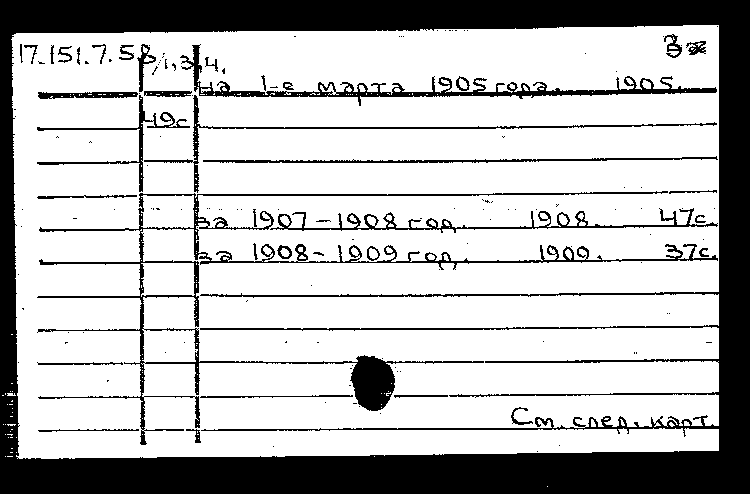 17.151.7.58/1,3,4.
на 1-е марта 1905 года. 1905.
49с
за 1907-1908 год. 1908. 47с.
за 1908-1909 год. 1909. 37с.
См. след. карт.